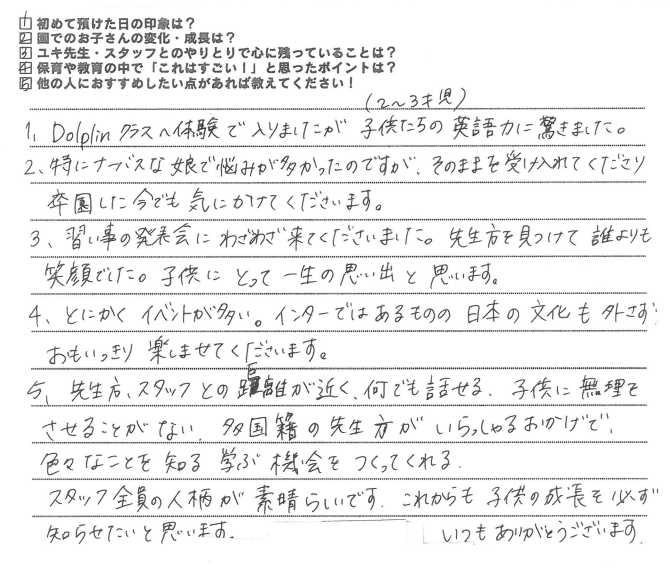 1 初めて預けた日の印象は？
2 園でのお子さんの変化・成長は？
3 ユキ先生・スタッフとのやりとりで心に残っていることは？
4 保育や教育の中で「これはすごい！」と思ったポイントは？
5 他の人におすすめしたい点があれば教えてください！
(2〜3才児)
1、Dolplinクラスへ体験で入りましたが 子供たちの英語力に驚きました。
2、特にナーバスな娘で悩みが多かったのですが、そのままを受け入れてくださり
卒園した今でも気にかけてくださいます。
3、習い事の発表会にわざわざ来てくださいました。先生方を見つけて誰よりも
笑顔でした。子供にとって一生の思い出と思います。
4、とにかくイベントが多い。インターではあるものの日本の文化も外さず
おもいっきり楽しませてくださいます。
5、先生方、スタッフとの距離が近く、何でも話せる、子供に無理を
させることがない、多国籍の先生方がいらっしゃるおかげで、
色々なことを知る学ぶ機会をつくってくれる。
スタッフ全員の人柄が素晴らしいです。これからも子供の成長を必ず
知らせたいと思います。 いつもありがとうございます